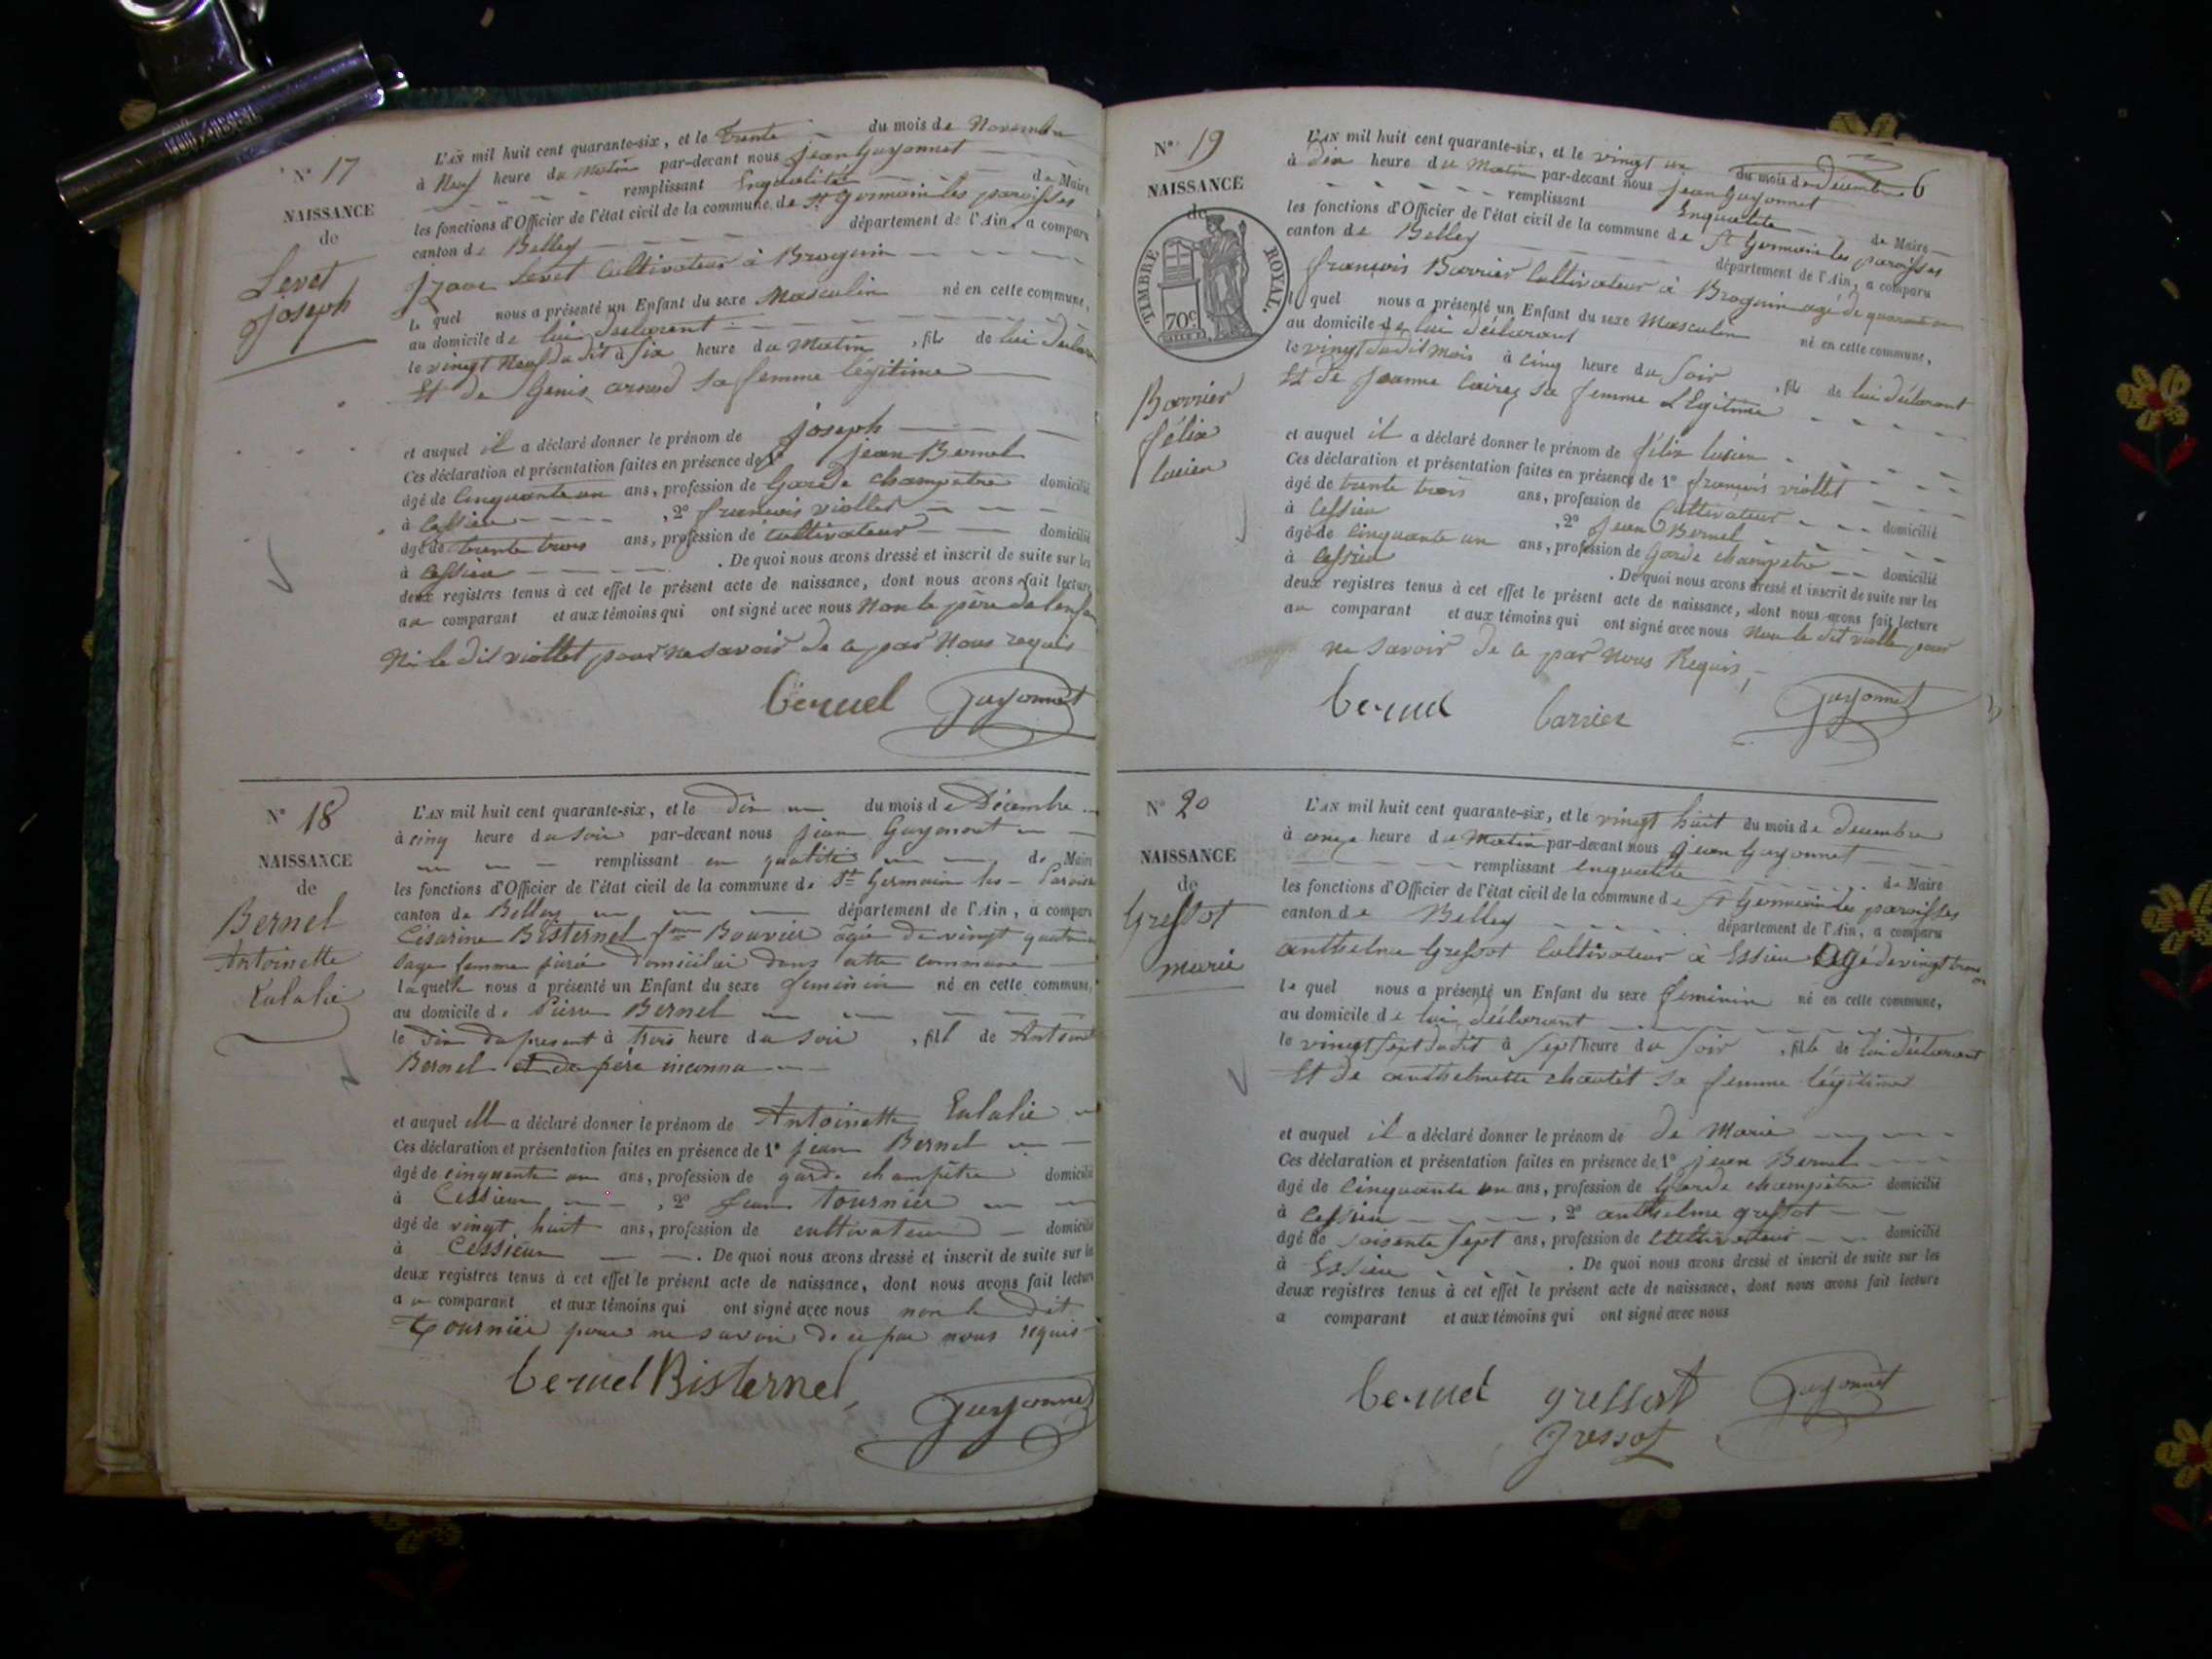 N° 17
NAISSANCE
de
Levet
joseph
L'AN mil huit cent quarante-six, et le trente du mois de Novembre
à Neuf heure du Matin par-devant nous jean Guyonnet
remplissant Enqualité de Maire
les fonctions d'Officier de l'état civil de la commune de St Germain les paroisses
canton de Belley département de l'Ain, a comparu
Levet Cultivateur à Brognin
le quel nous a présenté un Enfant du sexe Masculin né en cette commune,
au domicile de lui déclarant
le vingt Neuf du dit à six heure du Matin, fils de lui déclarant
Et de Genis arnod sa femme légitime
et auquel il a déclaré donner le prénom de joseph
Ces déclaration et présentation faites en présence de 1° jean Bernel
âgé de Cinquante un ans, profession de Garde champetre domicilié
à Cessieu, 2° francois viollet
âgé de trente trois ans, profession de cultivateur domicilié
à Cessieu. De quoi nous avons dressé et inscrit de suite sur les
deux registres tenus à cet effet le présent acte de naissance, dont nous avons fait lecture
au comparant et aux témoins qui ont signé avec nous Non le père de lenfan
Ni le dit viollet pour ne savoir de ce par Nous requis
bernel Guyonnet
N° 18
NAISSANCE
de
Bernel
Antoinette
Eulalie
L'AN mil huit cent quarante-six, et le dix du mois de Décembre
à cinq heure du soir par-devant nous jean Guyonnet
remplissant en qualité de Maire
les fonctions d'Officier de l'état civil de la commune de St Germain les Paroisse
canton de Belley département de l'Ain, a comparu
Césarine Bisternel fme Bouvier âgée de vingt quatre
sage femme jurée domiciliée dans cette commune
laquelle nous a présenté un Enfant du sexe feminin né en cette commune,
au domicile de Pierre Bernel
le dix du present à trois heure du soir, fill de Antoinet
Bernel et de père inconnu
et auquel elle a déclaré donner le prénom de Antoinette Eulalie
Ces déclaration et présentation faites en présence de 1° jean Bernel
âgé de cinquante un ans, profession de garde champêtre domicilié
à Cessieux, 2° jean tournier
âgé de vingt huit ans, profession de cultivateur domicilié
à Cessieux. De quoi nous avons dressé et inscrit de suite sur les
deux registres tenus à cet effet le présent acte de naissance, dont nous avons fait lecture
au comparant et aux témoins qui ont signé avec nous non le dit
tournier pour ne savoir de ce par nous requis
bernel Bisternel
Guyonnet
6
N° 19
NAISSANCE
de
TIMBRE ROYAL.
70c
Barrier
félix
lucien
L'AN mil huit cent quarante-six, et le vingt un du mois de décembre
à dix heure du Matin par-devant nous jean Guyonnet
remplissant Enqualité de Maire
les fonctions d'Officier de l'état civil de la commune de St Germain les paroisses
canton de Belley département de l'Ain, a comparu
françois Barrier Cultivateur à Brognin agé de quarante
le quel nous a présenté un Enfant du sexe Masculin né en cette commune,
au domicile de lui déclarant
le vingt dudit mois à cinq heure du soir, fils de lui déclarant
Et de Jeanne sa femme LEgitime
et auquel il a déclaré donner le prénom de félix lucien
Ces déclaration et présentation faites en présence de 1° françois viollet
âgé de trente trois ans, profession de Cultivateur domicilié
à Cessieu, 2° jean Bernel
âgé de Cinquante un ans, profession de Garde champetre domicilié
à Cessieu. De quoi nous avons dressé et inscrit de suite sur les
deux registres tenus à cet effet le présent acte de naissance, dont nous avons fait lecture
au comparant et aux témoins qui ont signé avec nous Non le dit viollet pour
ne savoir de ce par Nous Requis,
bernel barrier Guyonnet
N° 20
NAISSANCE
de
Gressot
marie
L'AN mil huit cent quarante-six, et le vingt huit du mois de decembre
à onze heure du Matin par-devant nous jean Guyonnet
remplissant enqualité de Maire
les fonctions d'Officier de l'état civil de la commune de St Germain les paroisses
canton de Belley département de l'Ain, a comparu
anthelme Gressot Cultivateur à Essieu agé de vingt
le quel nous a présenté un Enfant du sexe feminin né en cette commune,
au domicile de lui déclarant
le vingt sept dudit à sept heure du soir, fille de lui déclarant
Et de anthelmette chavtet sa femme légitime
et auquel il a déclaré donner le prénom de de Marie
Ces déclaration et présentation faites en présence de 1° jean Bernel
âgé de Cinquante un ans, profession de Garde champètre domicilié
à Cessieu, 2° anthelme gressot
âgé de soisente sept ans, profession de Cultivateur domicilié
à Essieu. De quoi nous avons dressé et inscrit de suite sur les
deux registres tenus à cet effet le présent acte de naissance, dont nous avons fait lecture
a comparant et aux témoins qui ont signé avec nous
bernel gressot Guyonnet
gressot